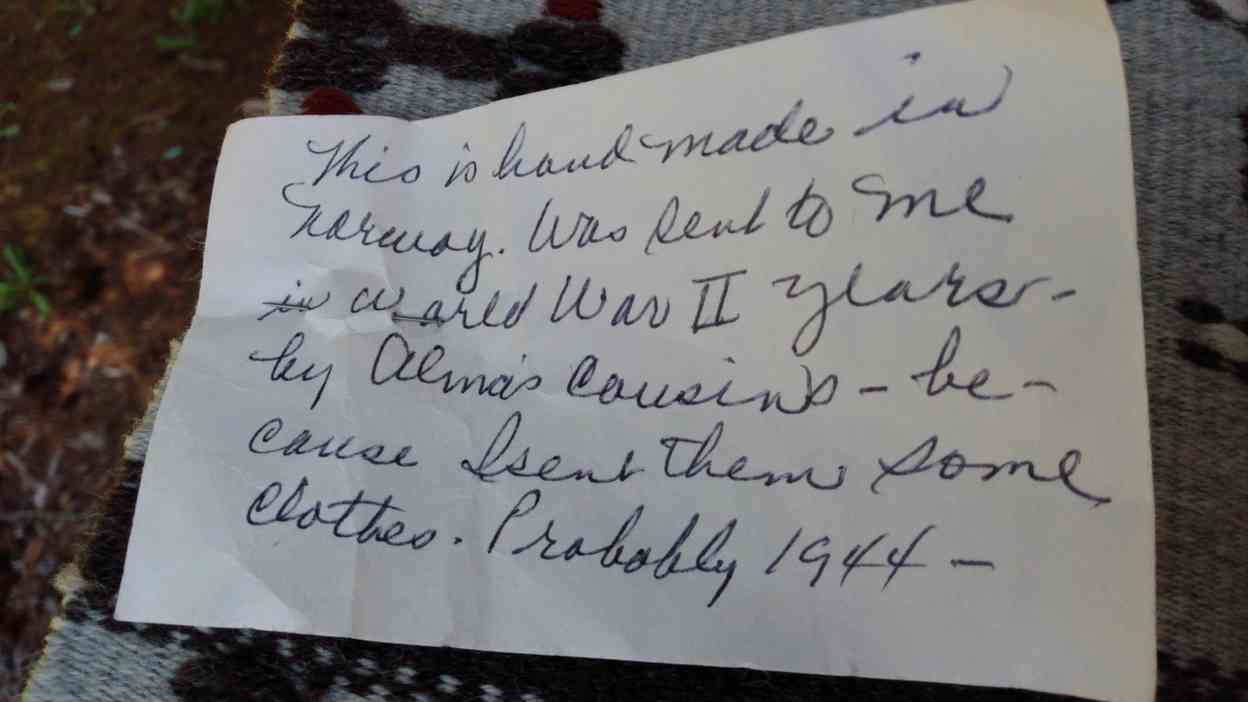 This is hand made in
Norway. Was sent to me
in World War II years -
by Alma's cousins - be-
cause I sent them some
clothes. Probably 1944 -